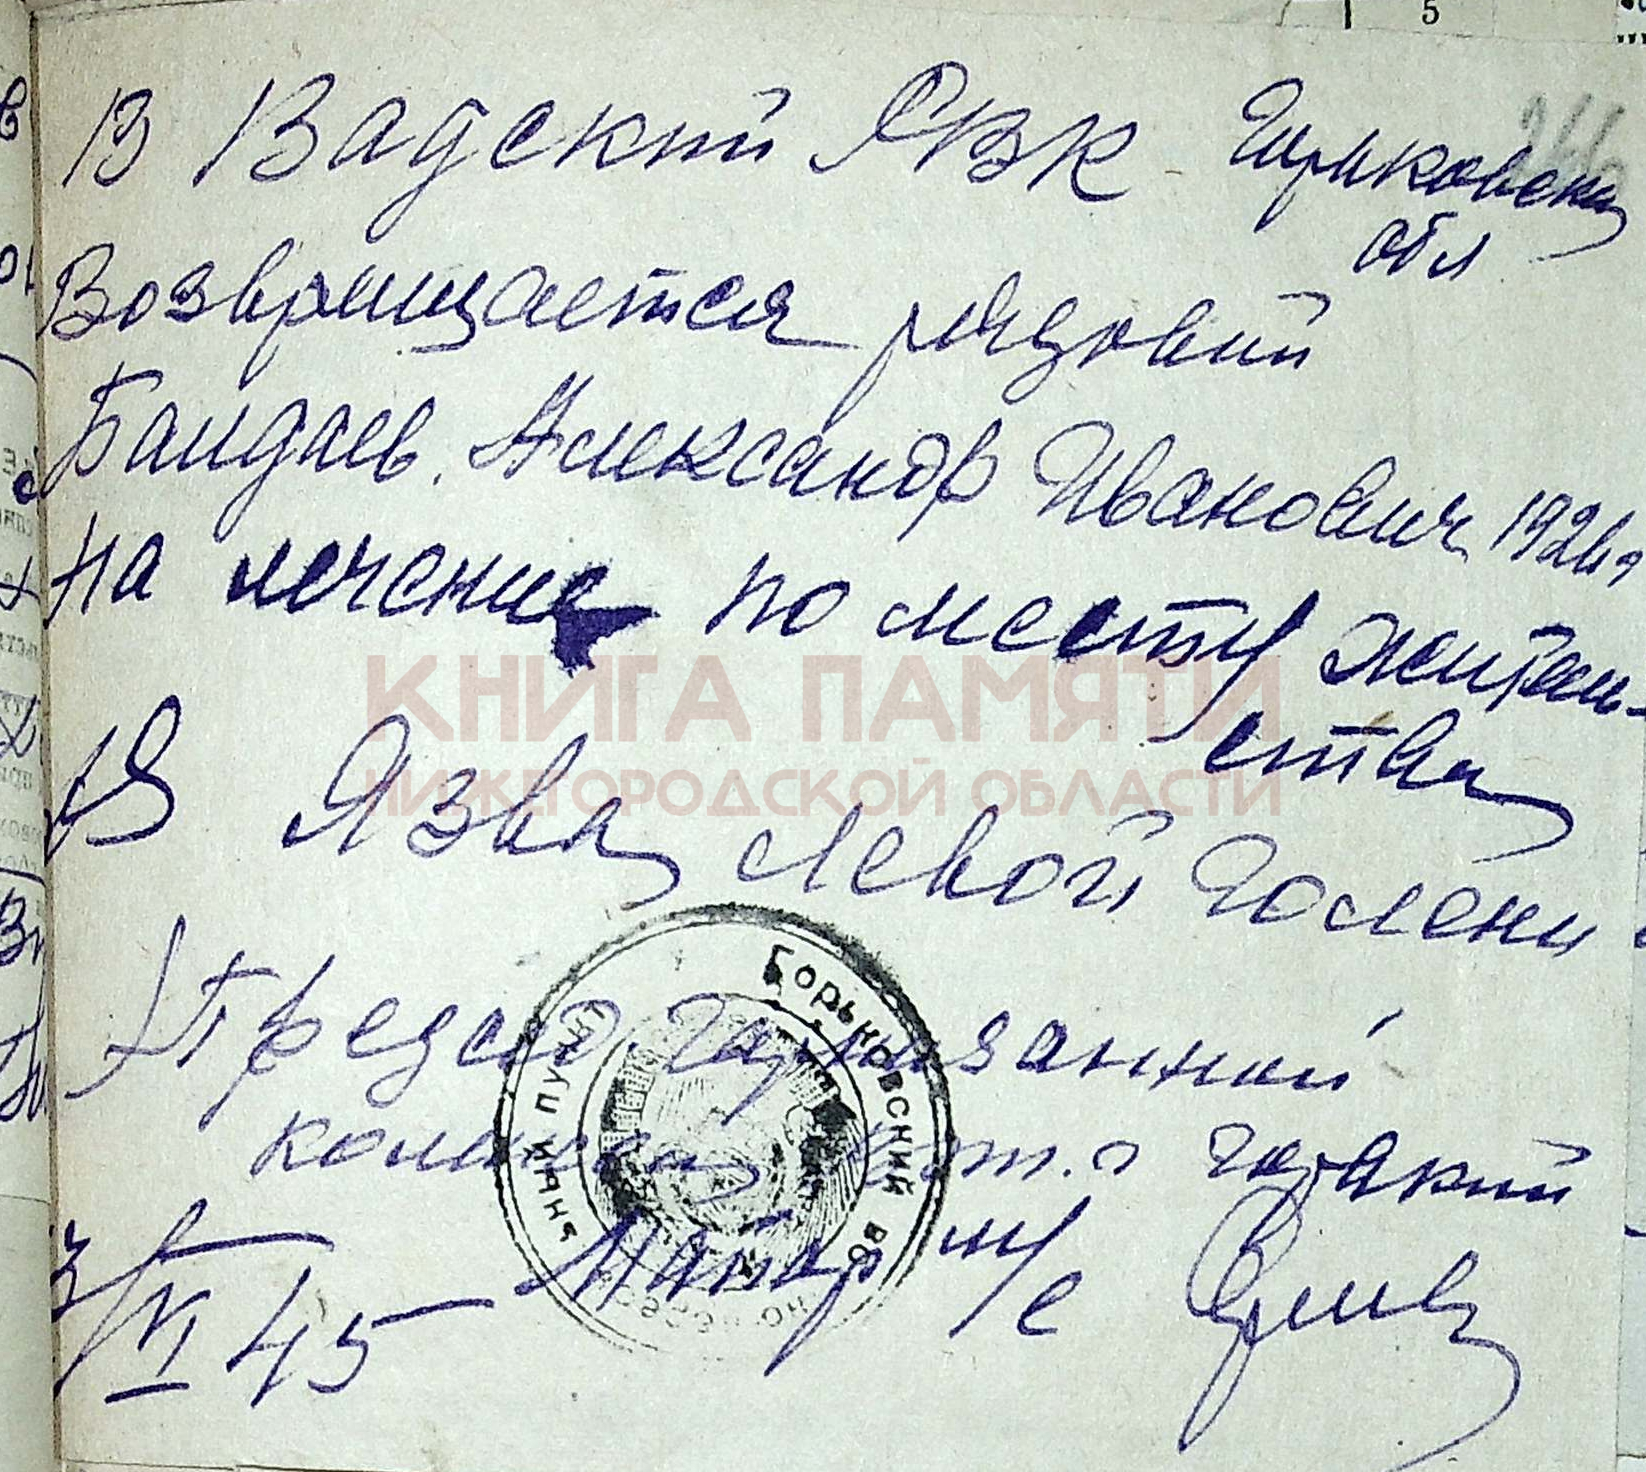 5
В Вадский РВК Горьковский
обл
Возвращается рядовой
Бандаев Александр Иванович 1926г
на лечение по месту житель-
ства
Язва левой голени
Председ. гарнизонной
г. Горький
Майор м/с
3/VI 45
Горьковский во
ьный пункт
КНИГА ПАМЯТИ
НИЖЕГОРОДСКОЙ ОБЛАСТИ